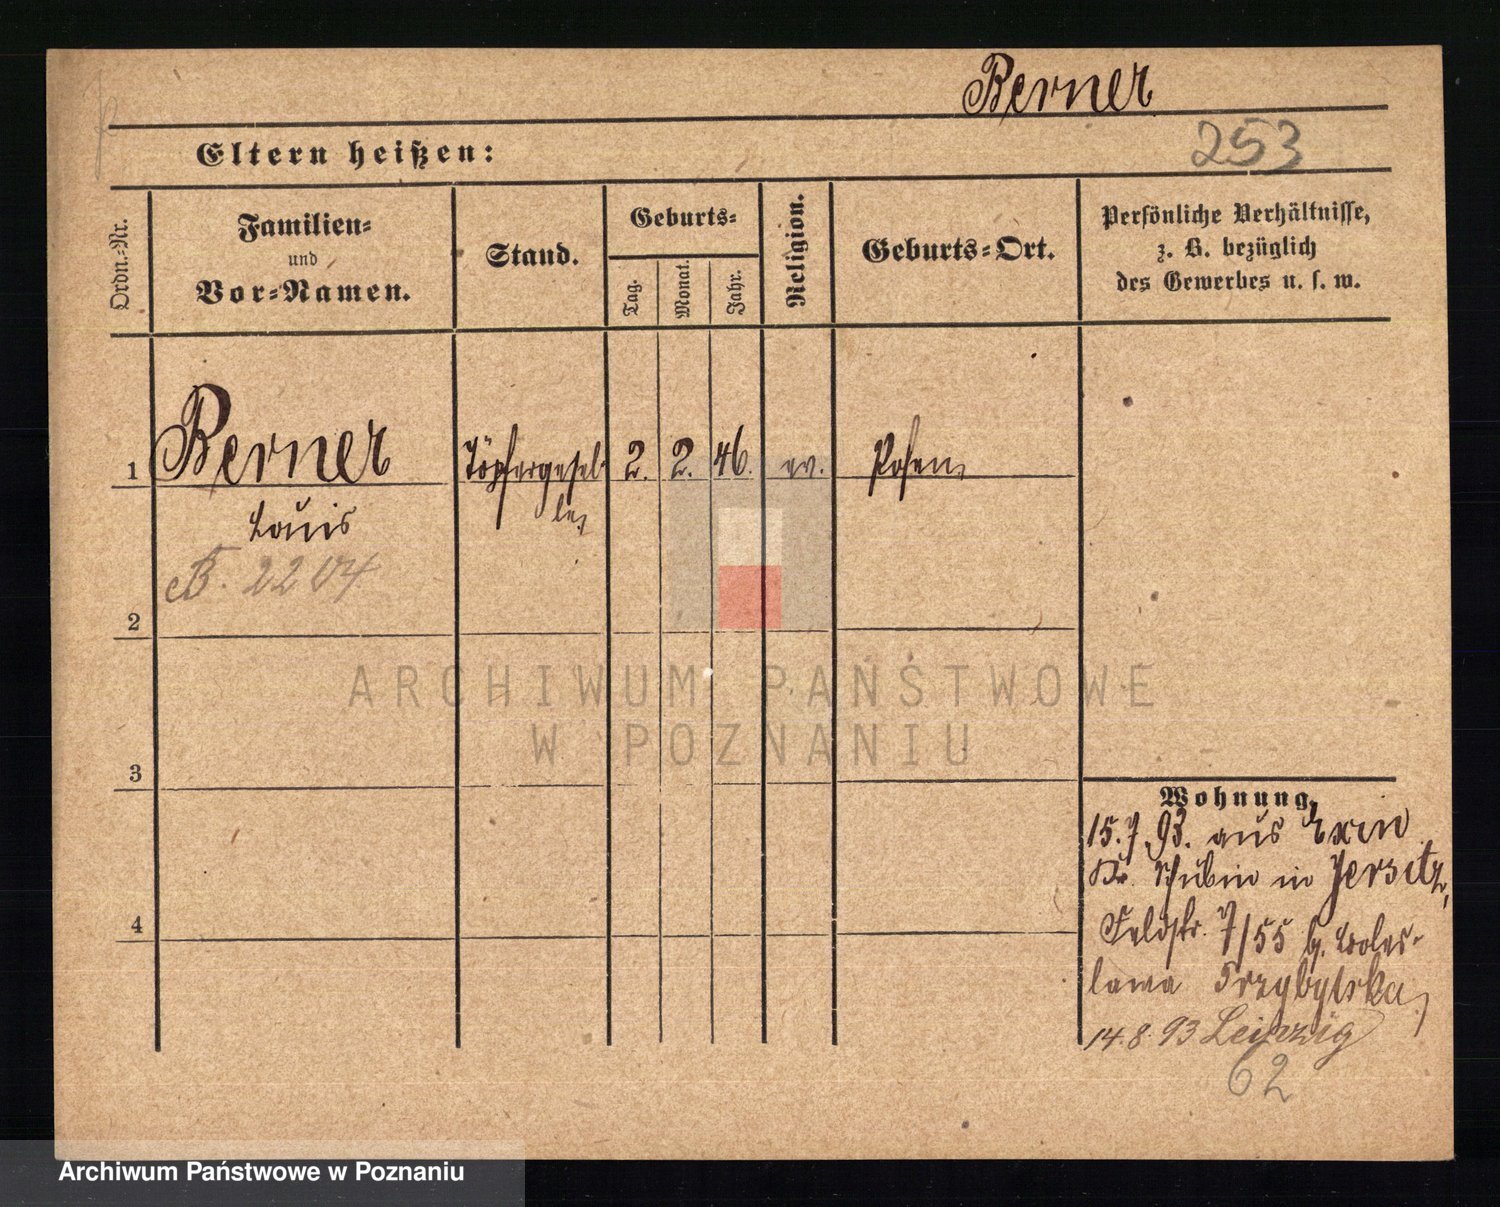 Berner
253
Eltern heißen:
Ordn.-Nr.
Familien-
und
Vor-Namen.
Stand.
Geburts-
Tag.
Monat.
Jahr.
Religion.
Geburts-Ort.
Persönliche Verhältnisse,
z. B. bezüglich
des Gewerbes u. s. w.
1 Berner Töpfergesel- 2. 2. 46. ev. Posen
Louis le
B. 2204
2
3
4
ARCHIWUM PAŃSTWOWE
W POZNANIU
Wohnung.
15.7.93. aus Exin
Kr. Schubin in Jersitz,
Feldstr. 7/55 b. Boles-
lawa Przybylska
14.8.93 Leipzig
62
Archiwum Państwowe w Poznaniu